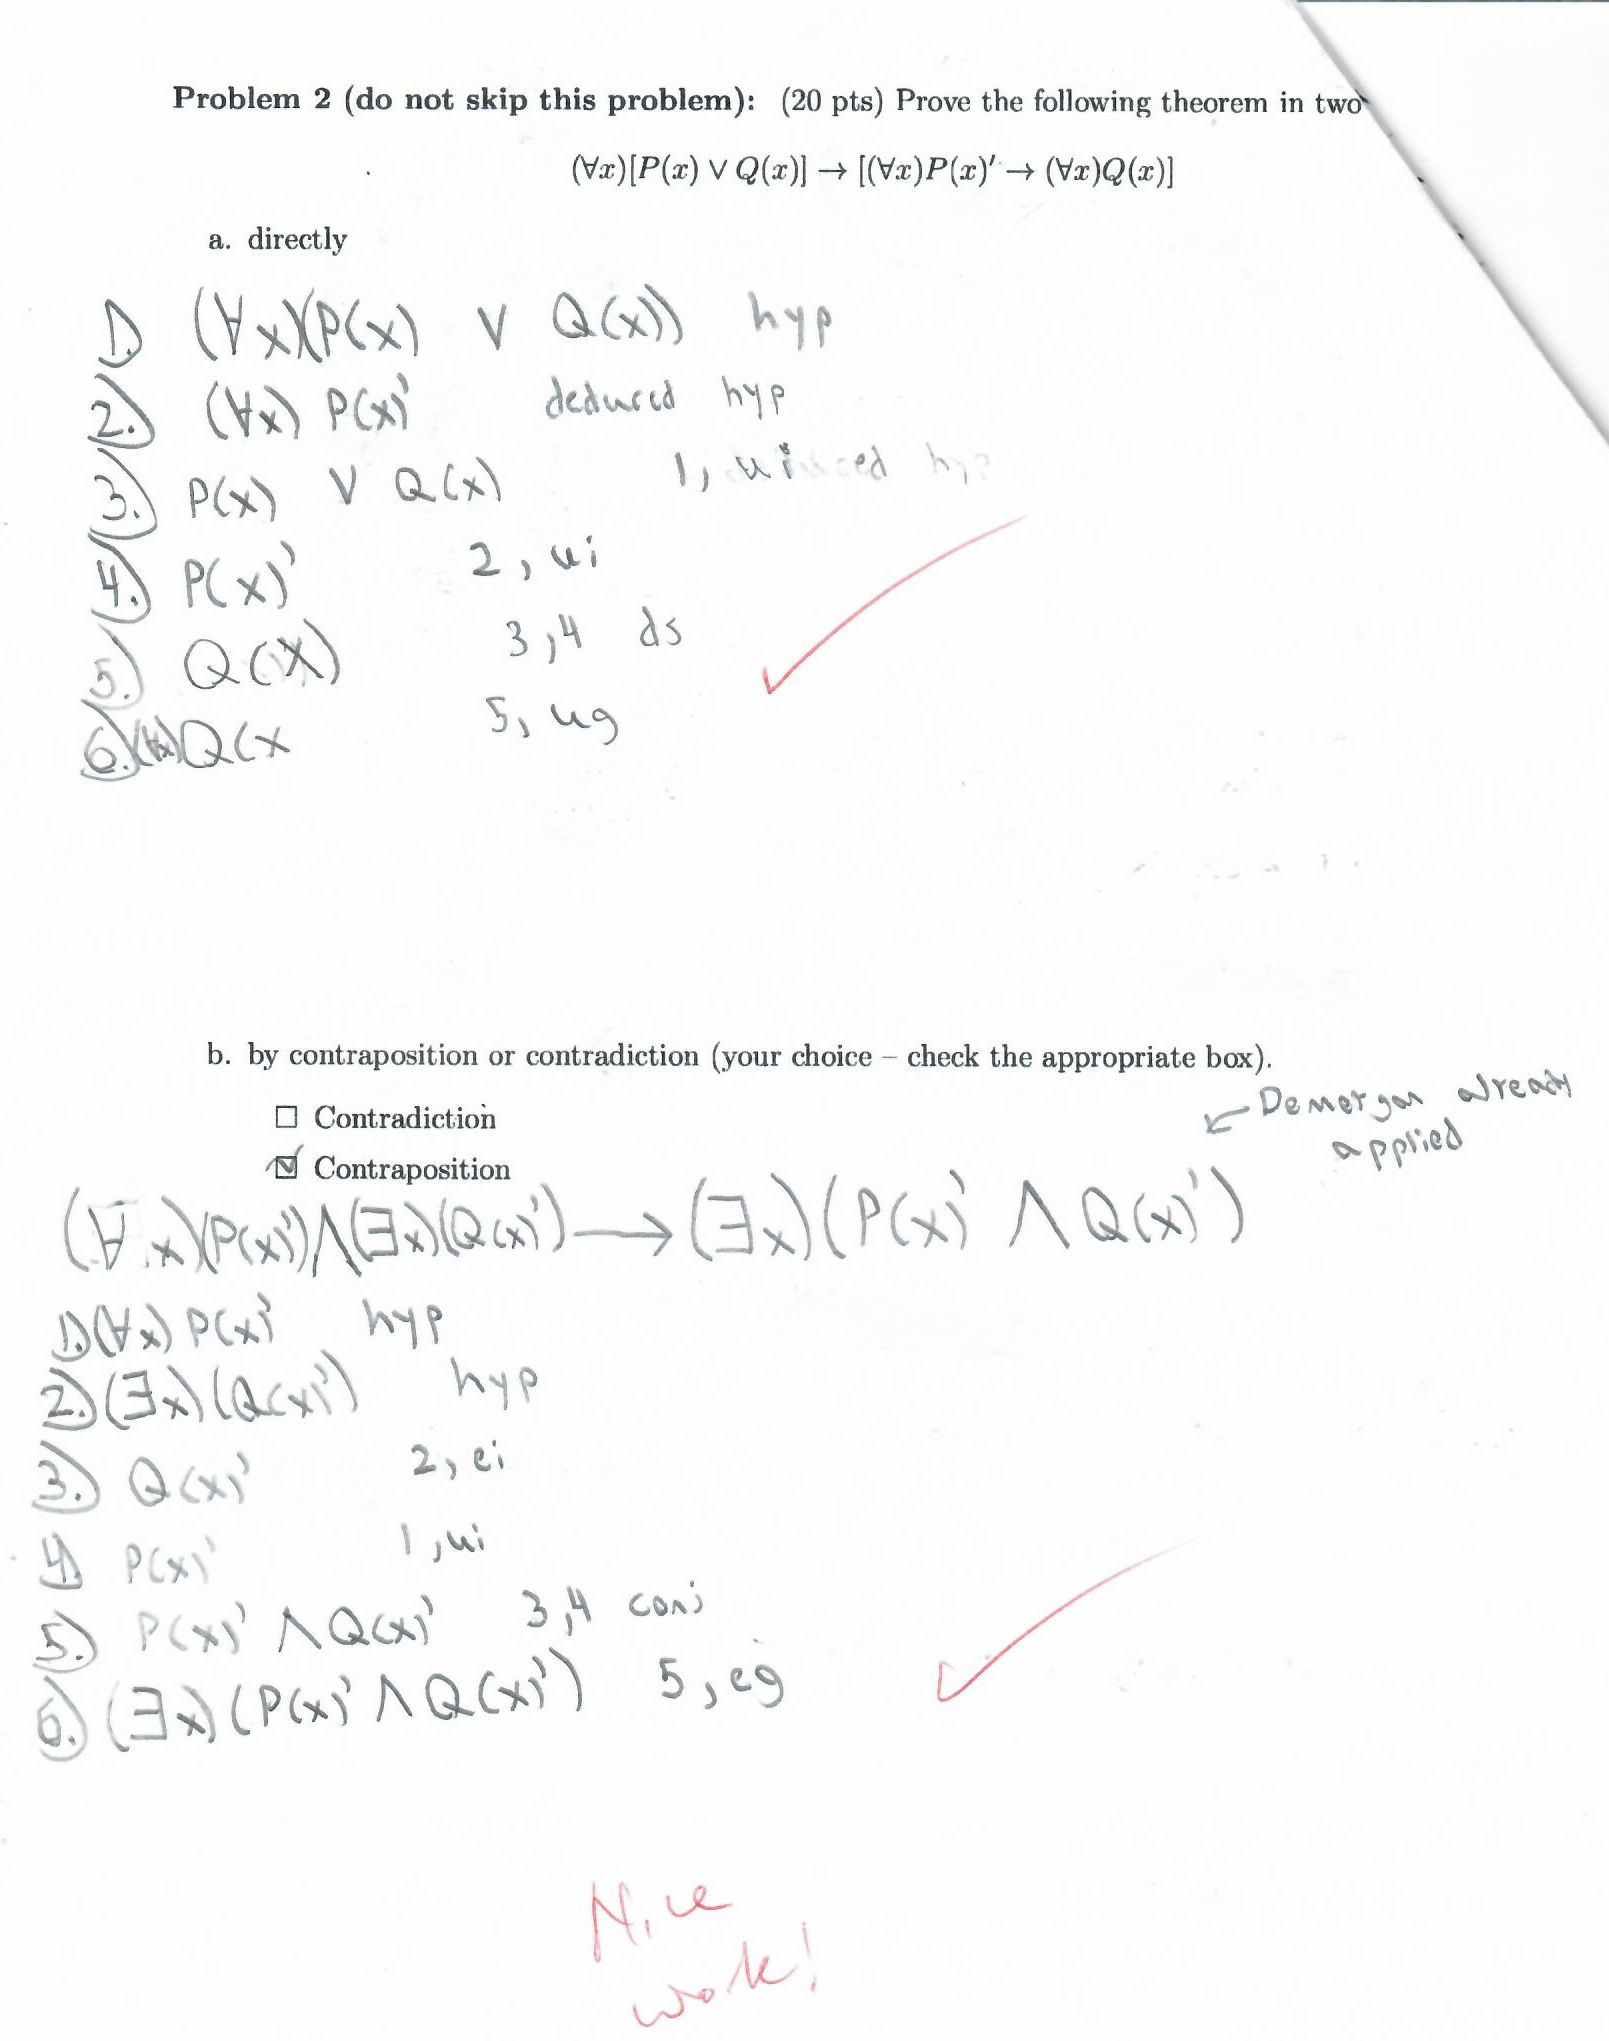 Problem 2 (do not skip this problem): (20 pts) Prove the following theorem in two
(∀x)[P(x) ∨ Q(x)] → [(∀x)P(x)′ → (∀x)Q(x)]
a. directly
1. (∀x)(P(x) ∨ Q(x)) hyp
2. (∀x) P(x)' deduced hyp
3. P(x) ∨ Q(x) 1, ui
4. P(x)' 2, ui
5. Q(x) 3,4 ds
6. (∀x)Q(x 5, ug
b. by contraposition or contradiction (your choice – check the appropriate box).
☐ Contradiction
☑ Contraposition
← Demorgan already
applied
(∀x)(P(x)')∧(∃x)(Q(x)') → (∃x)(P(x)' ∧ Q(x)')
1. (∀x) P(x)' hyp
2. (∃x)(Q(x)') hyp
3. Q(x)' 2, ei
4. P(x)' 1, ui
5. P(x)' ∧ Q(x)' 3,4 conj
6. (∃x)(P(x)' ∧ Q(x)') 5, eg
Nice
work!